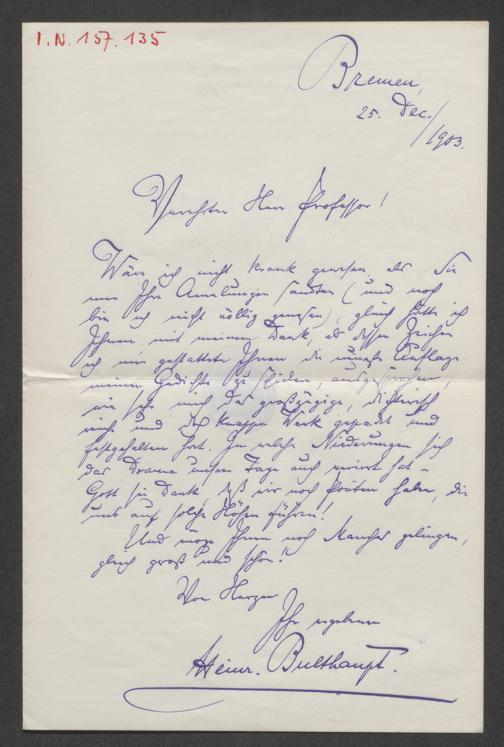 I.N. 157.135
Bremen,
25. Dec./
1903.
Verehrter Herr Professor!
Wäre ich nicht krank gewesen, als Sie
mir Ihre Amelungen sandten (und noch
bin ich nicht völlig genesen), gleich hätte ich
Ihnen mit meinem Dank, als dessen Zeichen
ich mir gestattete Ihnen die neueste Auflage
meiner Gedichte zu senden, ausgesprochen,
wie sehr mich das großzügige, dichterisch
reiche und doch knappe Werk gepackt und
festgehalten hat. In welche Niederungen sich
das Drama unserer Tage auch verirrt hat –
Gott sei Dank, daß wir noch Poeten haben, die
uns auf solche Höhen führen!
Und möge Ihnen noch Manches gelingen,
gleich groß und schön!
Von Herzen
Ihr ergebener
Heinr. Bulthaupt.